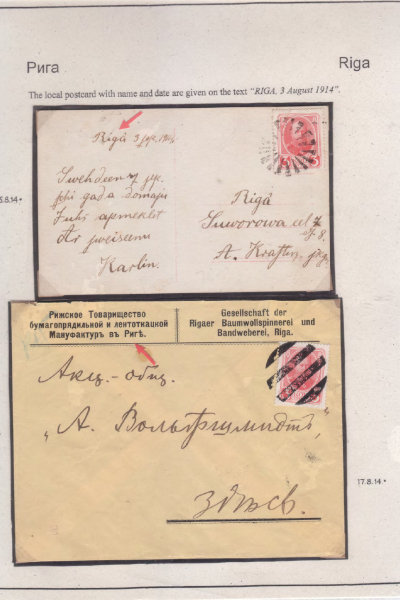 Рига
Riga
The local postcard with name and date are given on the text "RIGA, 3 August 1914".
3.8.14•
Rīgā 3
Swehdeen 7
gada
Juhs apmeklet
Ar sweizeenu
Karlin.
Rīgā
Suworowa
A.
Рижское Товарищество
бумагопрядильной и лентоткацкой
Мануфактуръ въ Ригѣ.
Gesellschaft der
Rigaer Baumwollspinnerei und
Bandweberei, Riga.
Акц.-общ.
„А. Вольфшмидтъ"
Здѣсь.
17.8.14•